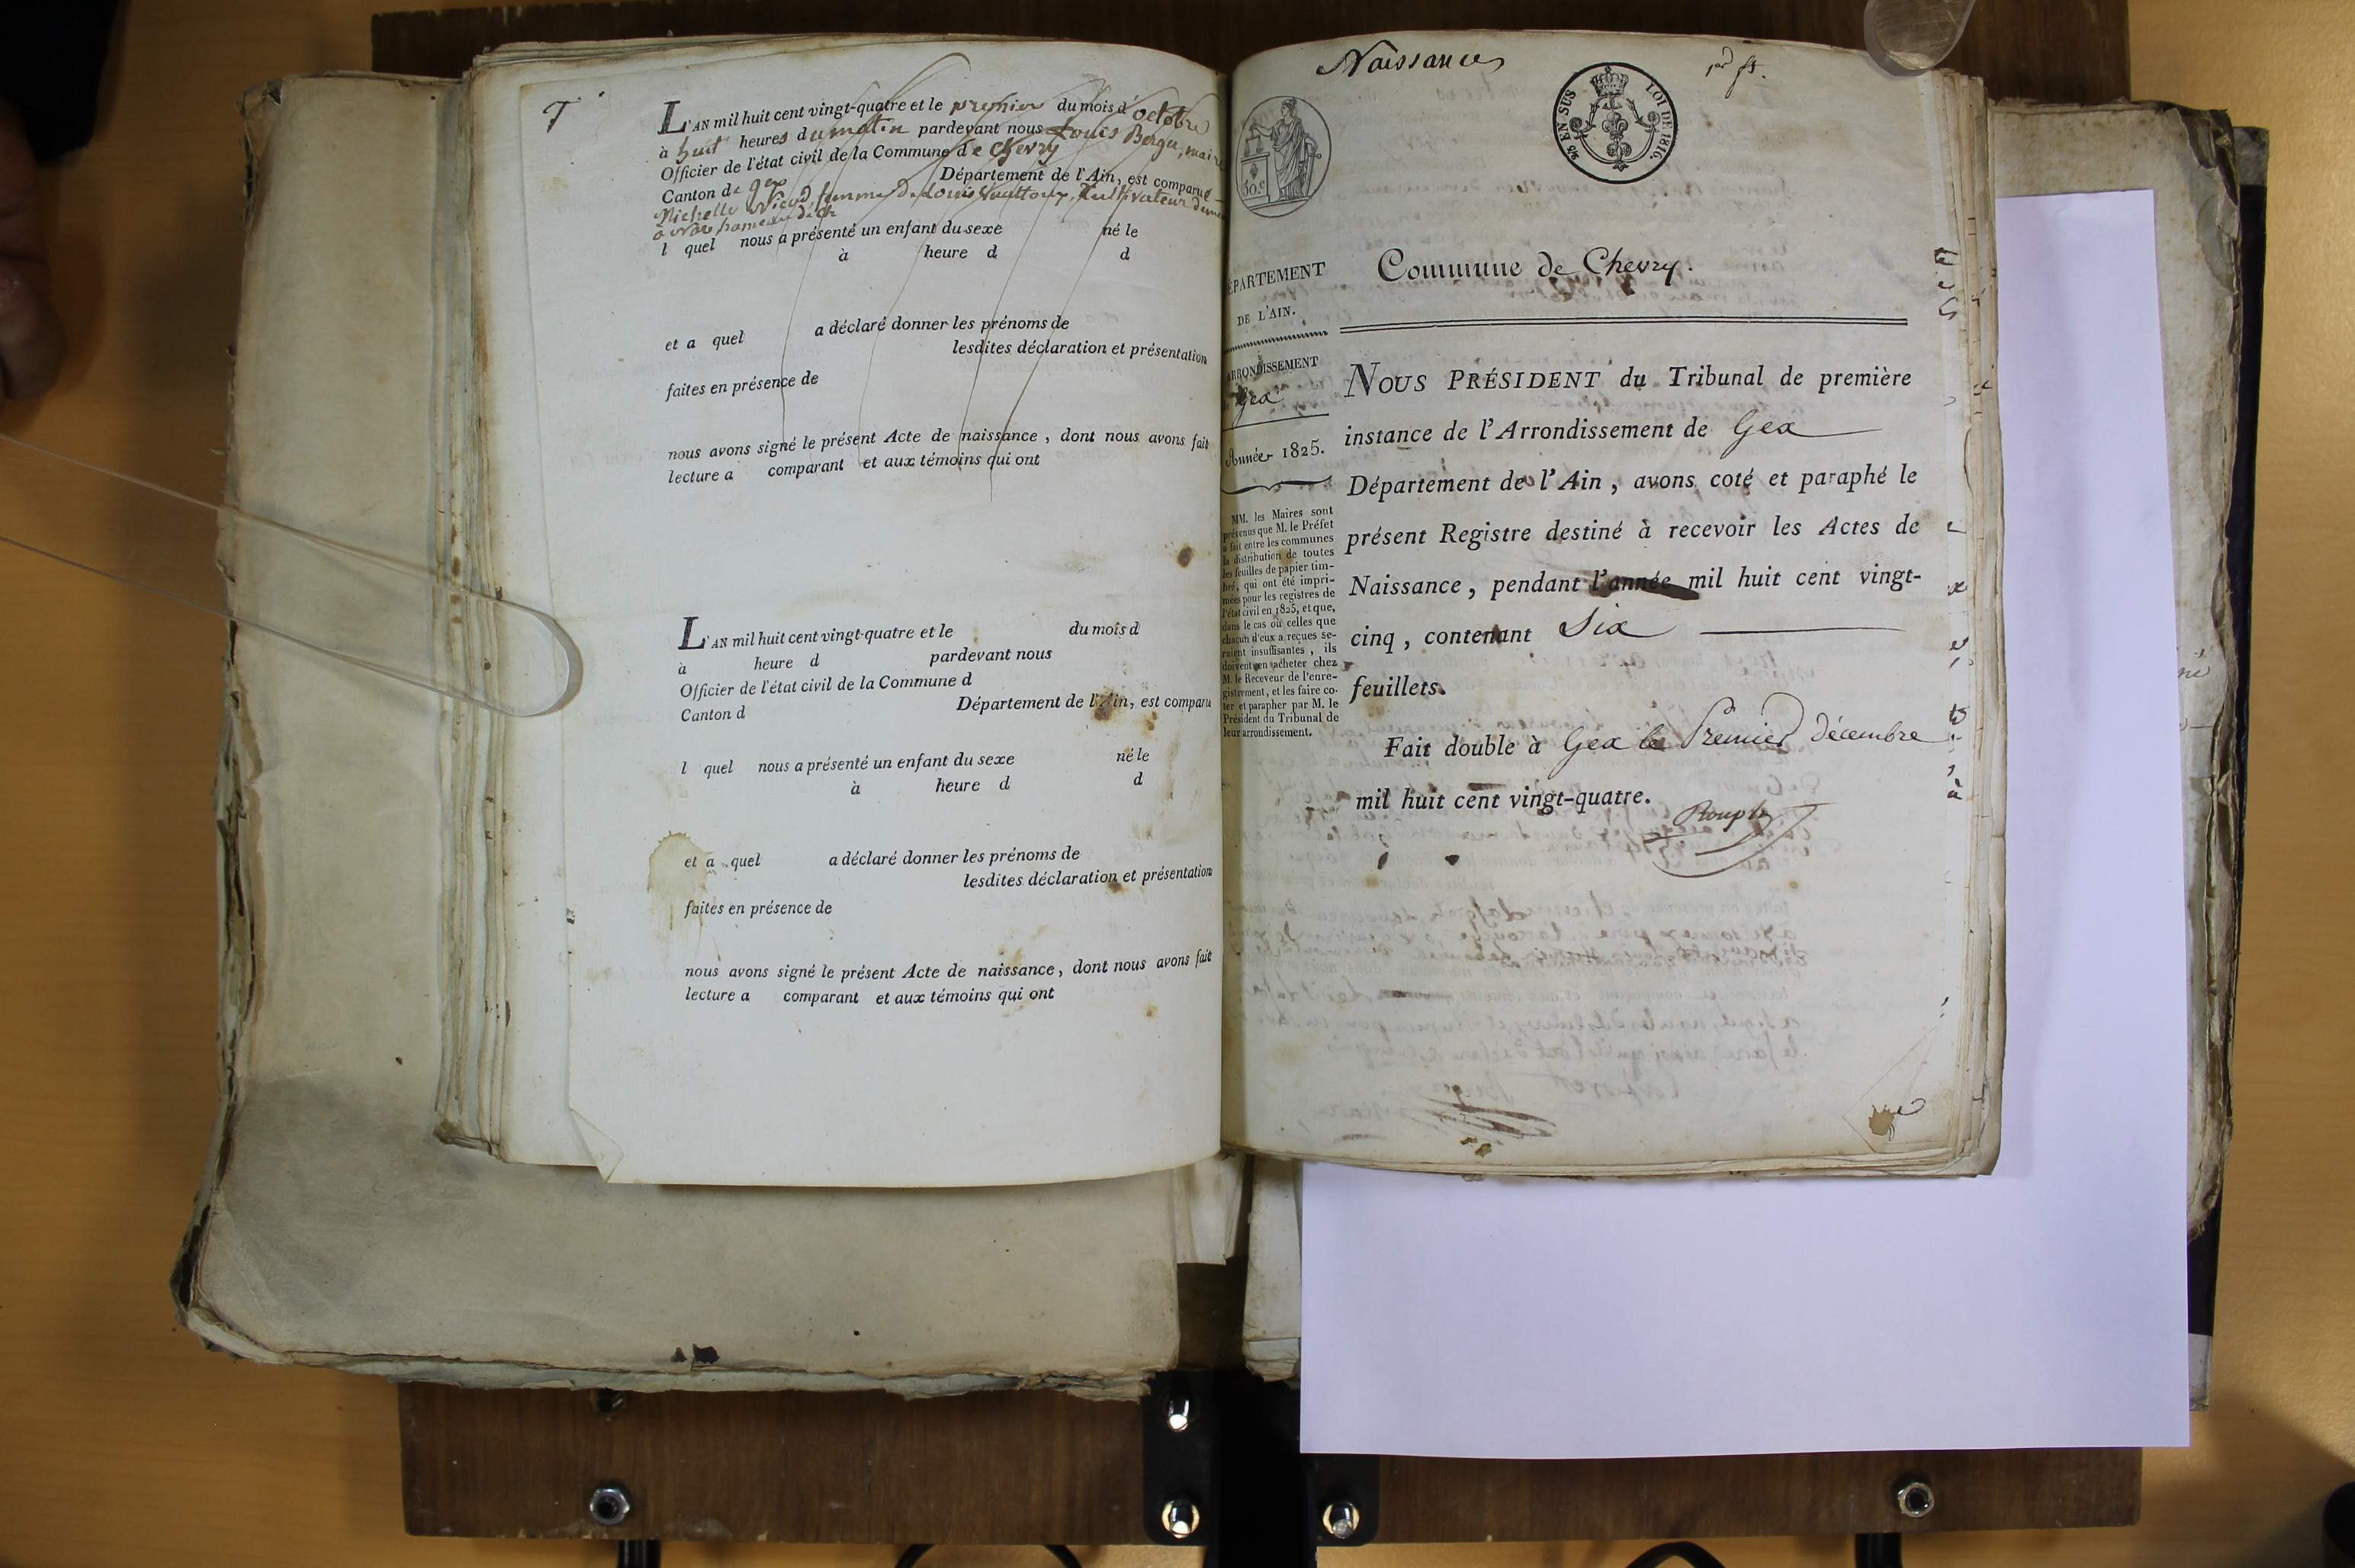 L'AN mil huit cent vingt-quatre et le premier du mois d'octobre
à huit heures du matin pardevant nous Louis Berger, maire
Officier de l'état civil de la Commune de Chevry
Canton de gex Département de l'Ain, est comparue
Michelle femme de Louis cultivateur
hameau
l quel nous a présenté un enfant du sexe né le
à heure d d
et a quel a déclaré donner les prénoms de
lesdites déclaration et présentation
faites en présence de
nous avons signé le présent Acte de naissance, dont nous avons fait
lecture a comparant et aux témoins qui ont
L'AN mil huit cent vingt-quatre et le du mois d
à heure d pardevant nous
Officier de l'état civil de la Commune d
Canton d Département de l'Ain, est comparu
l quel nous a présenté un enfant du sexe né le
à heure d d
et a quel a déclaré donner les prénoms de
lesdites déclaration et présentation
faites en présence de
nous avons signé le présent Acte de naissance, dont nous avons fait
lecture a comparant et aux témoins qui ont
Naissances
EN SUS LOI DE 1816.
30.c
DÉPARTEMENT
DE L'AIN.
ARRONDISSEMENT
Gex
Année 1825.
MM. les Maires sont
prévenus que M. le Préfet
a fait entre les communes
la distribution de toutes
les feuilles de papier tim-
bré, qui ont été impri-
mées pour les registres de
l'état civil en 1825, et que,
dans le cas où celles que
chacun d'eux a reçues se-
raient insuffisantes, ils
doivent en acheter chez
M. le Receveur de l'enre-
gistrement, et les faire co-
ter et parapher par M. le
Président du Tribunal de
leur arrondissement.
Commune de Chevry.
NOUS PRÉSIDENT du Tribunal de première
instance de l'Arrondissement de Gex
Département de l'Ain, avons coté et paraphé le
présent Registre destiné à recevoir les Actes de
Naissance, pendant l'année mil huit cent vingt-
cinq, contenant Six
feuillets.
Fait double à Gex le Premier décembre
mil huit cent vingt-quatre.